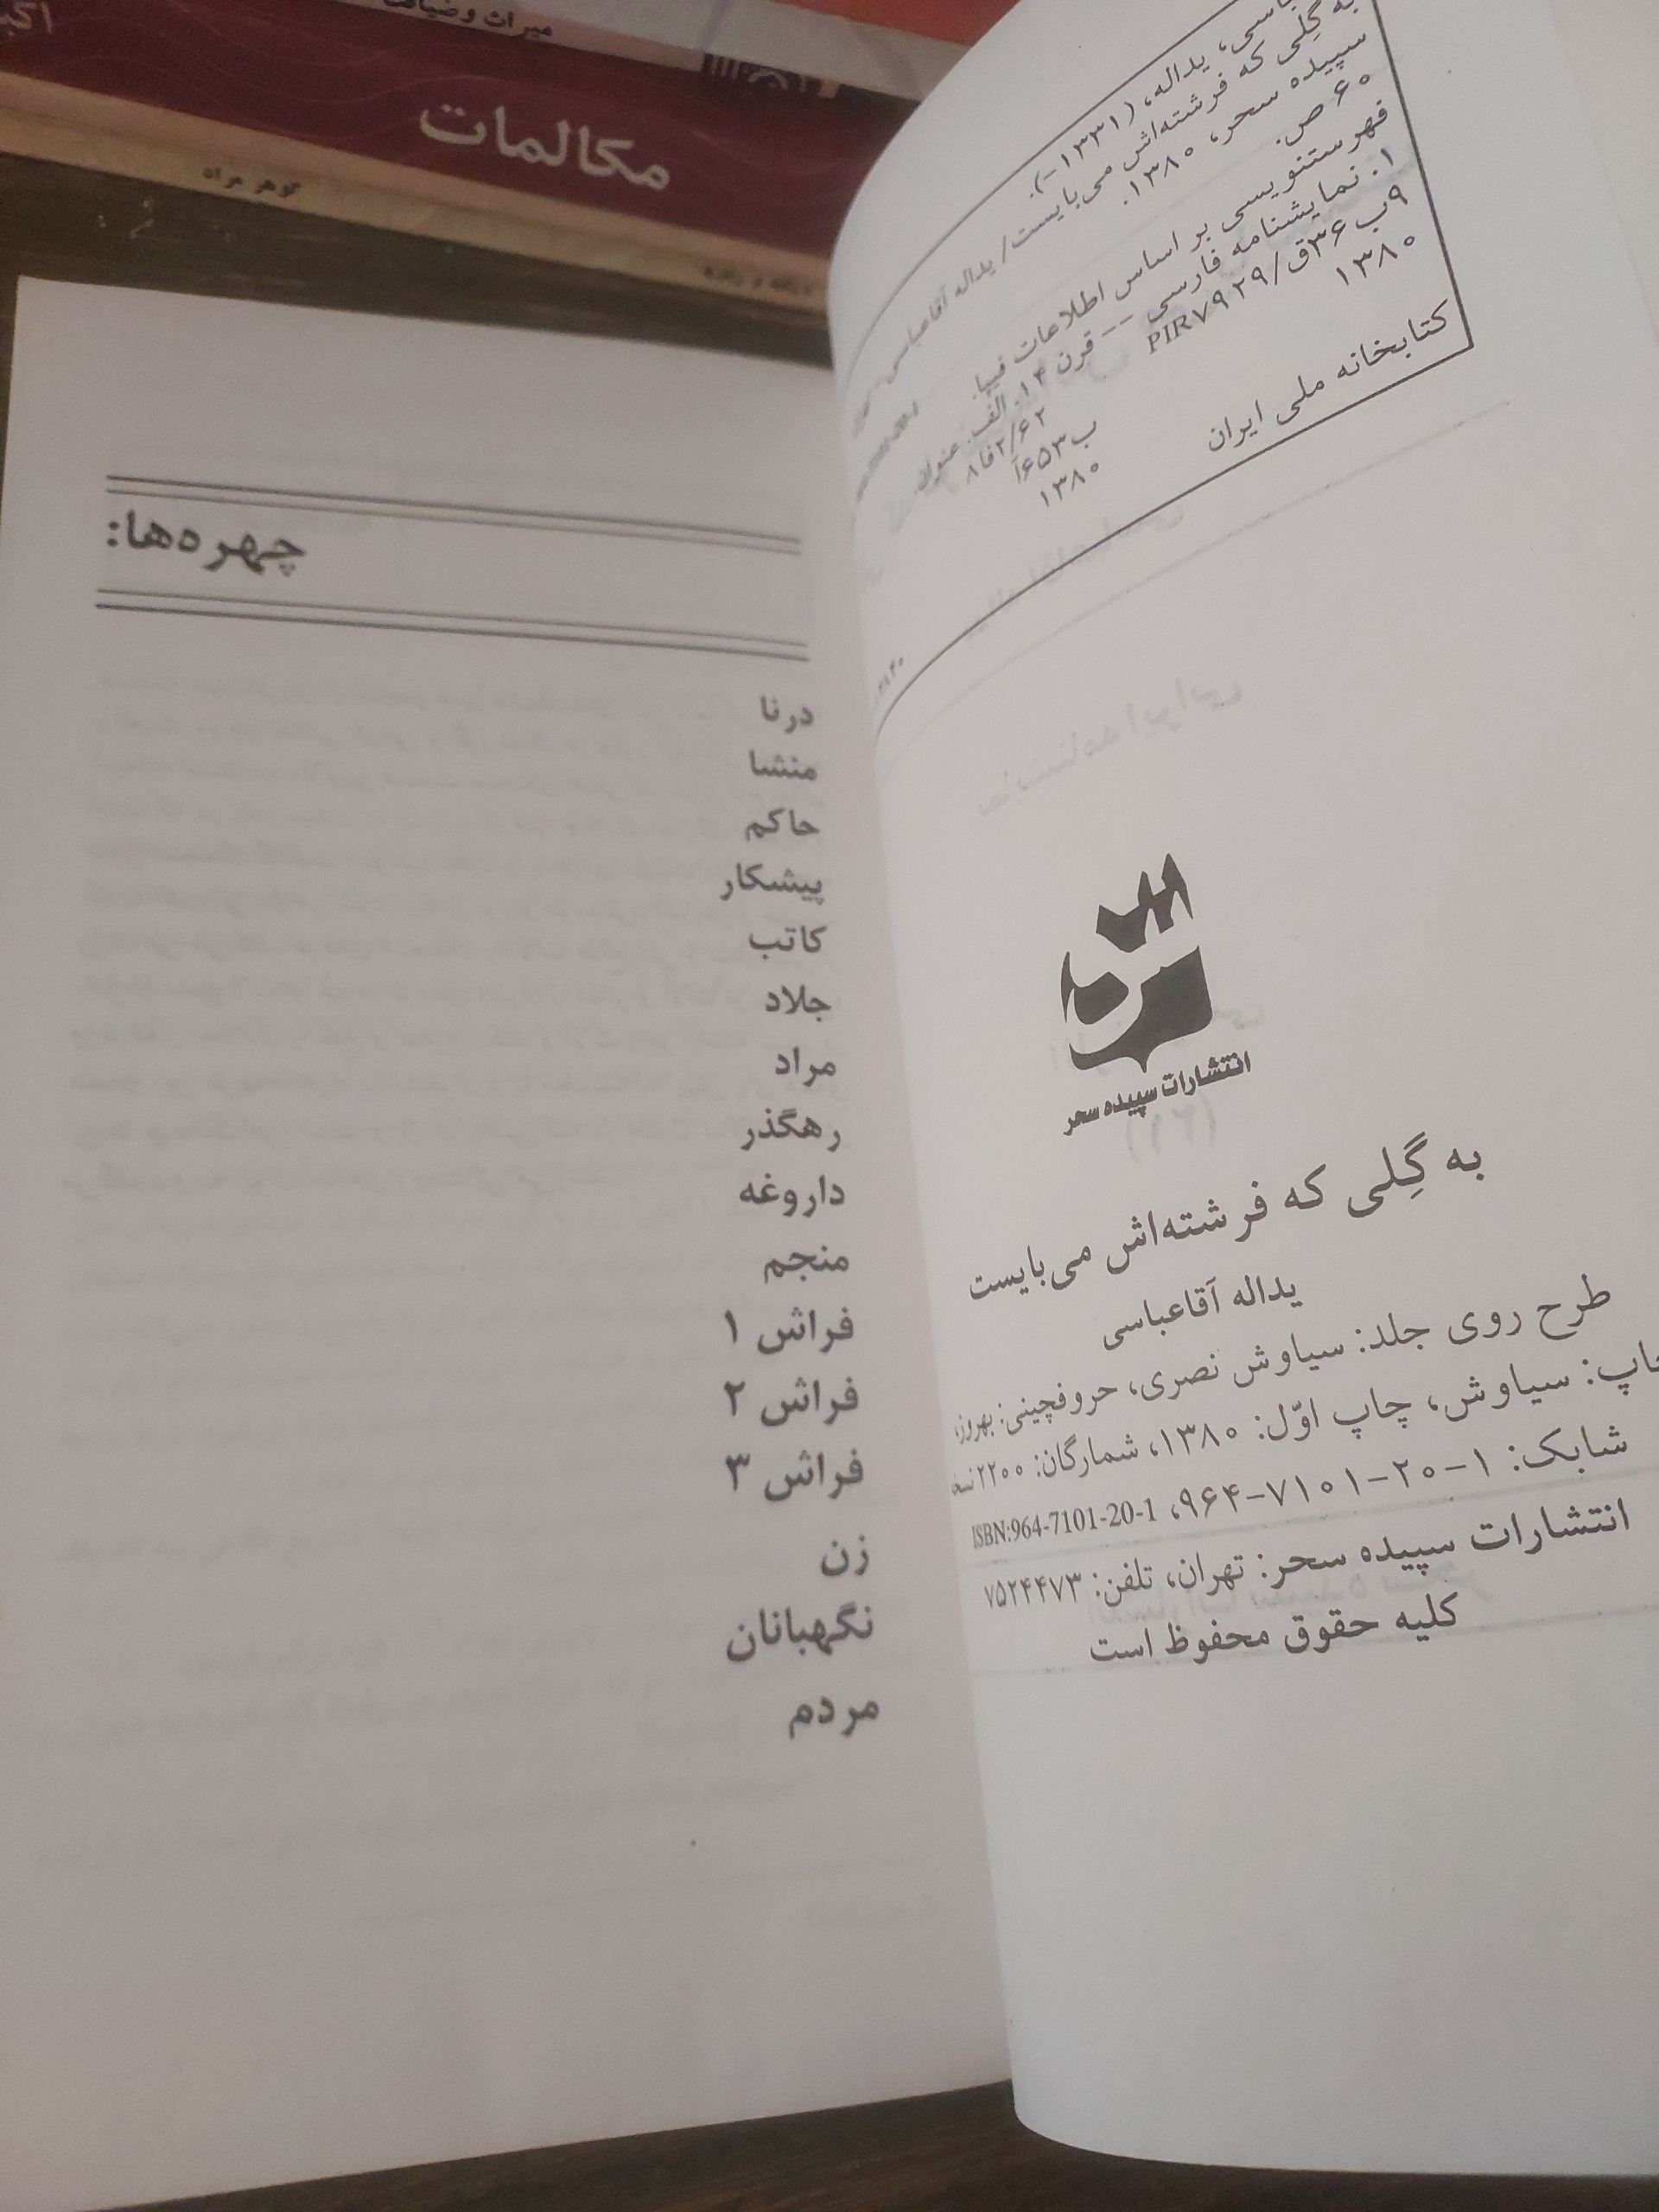 میراث و ضیافت
مکالمات
گوهر مراد
یداله، (۱۳۳۱-).
به گِلی که فرشته‌اش می‌بایست/ یداله آقاعباسی
سپیده سحر، ۱۳۸۰.
۶۰ ص.
فهرستنویسی بر اساس اطلاعات فیپا.
۱. نمایشنامه فارسی -- قرن ۱۴. الف. عنوان.
۹ب۳۶ق/PIR۷۹۲۹
۸فا۲/۶۲
۱۳۸۰
ب۶۵۳آ
۱۳۸۰
کتابخانه ملی ایران
انتشارات سپیده سحر
به گِلی که فرشته‌اش می‌بایست
یداله آقاعباسی
طرح روی جلد: سیاوش نصری، حروفچینی: بهروز،
چاپ: سیاوش، چاپ اوّل: ۱۳۸۰، شمارگان: ۲۲۰۰
شابک: ۱-۲۰-۷۱۰۱-۹۶۴، ISBN:964-7101-20-1
انتشارات سپیده سحر: تهران، تلفن: ۷۵۲۴۴۷۳
کلیه حقوق محفوظ است
چهره‌ها:
درنا
منشا
حاکم
پیشکار
کاتب
جلاد
مراد
رهگذر
داروغه
منجم
فراش ۱
فراش ۲
فراش ۳
زن
نگهبانان
مردم